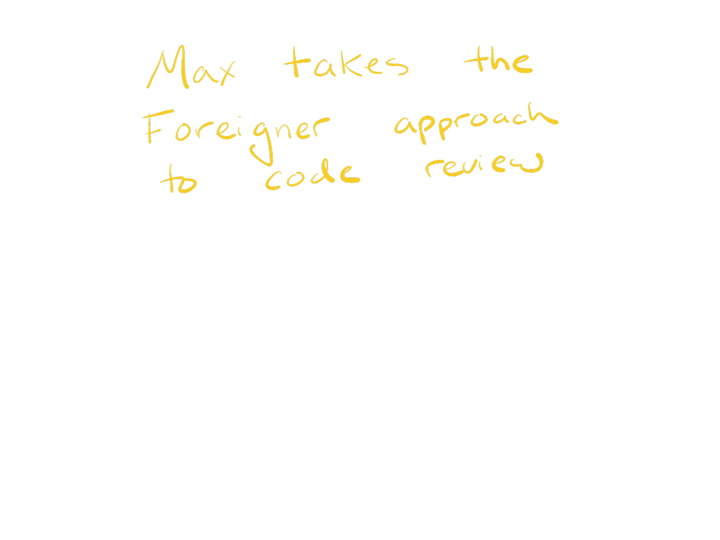 Max takes the
Foreigner approach
to code review